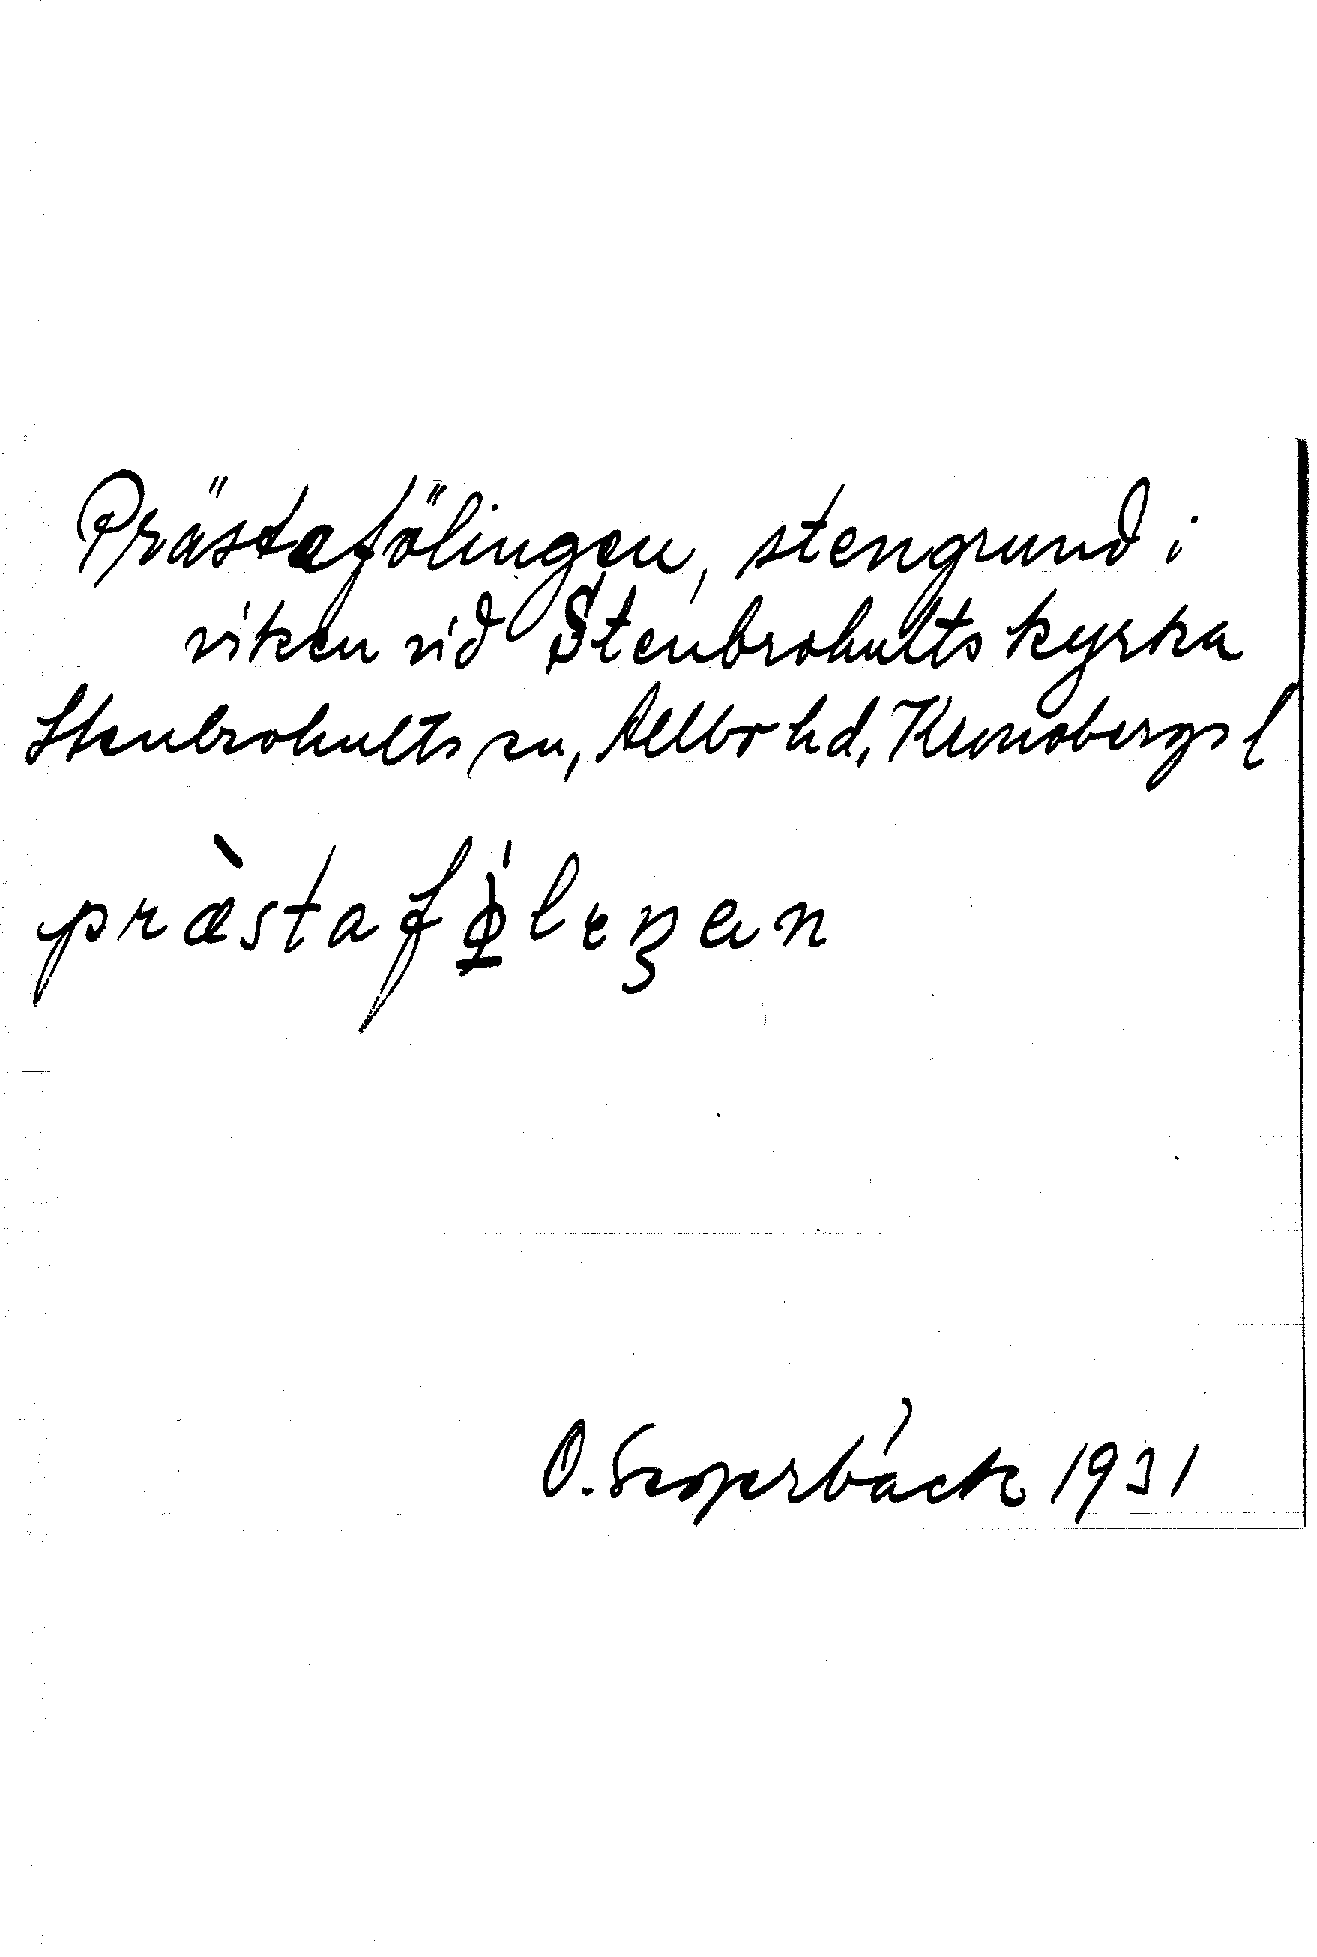 Prästafölingen, stengrund i
viken vid Stenbrohults kyrka
Stenbrohults sn, Allbo hd, Kronobergs l
præstaføleŋen
O. Gasslander